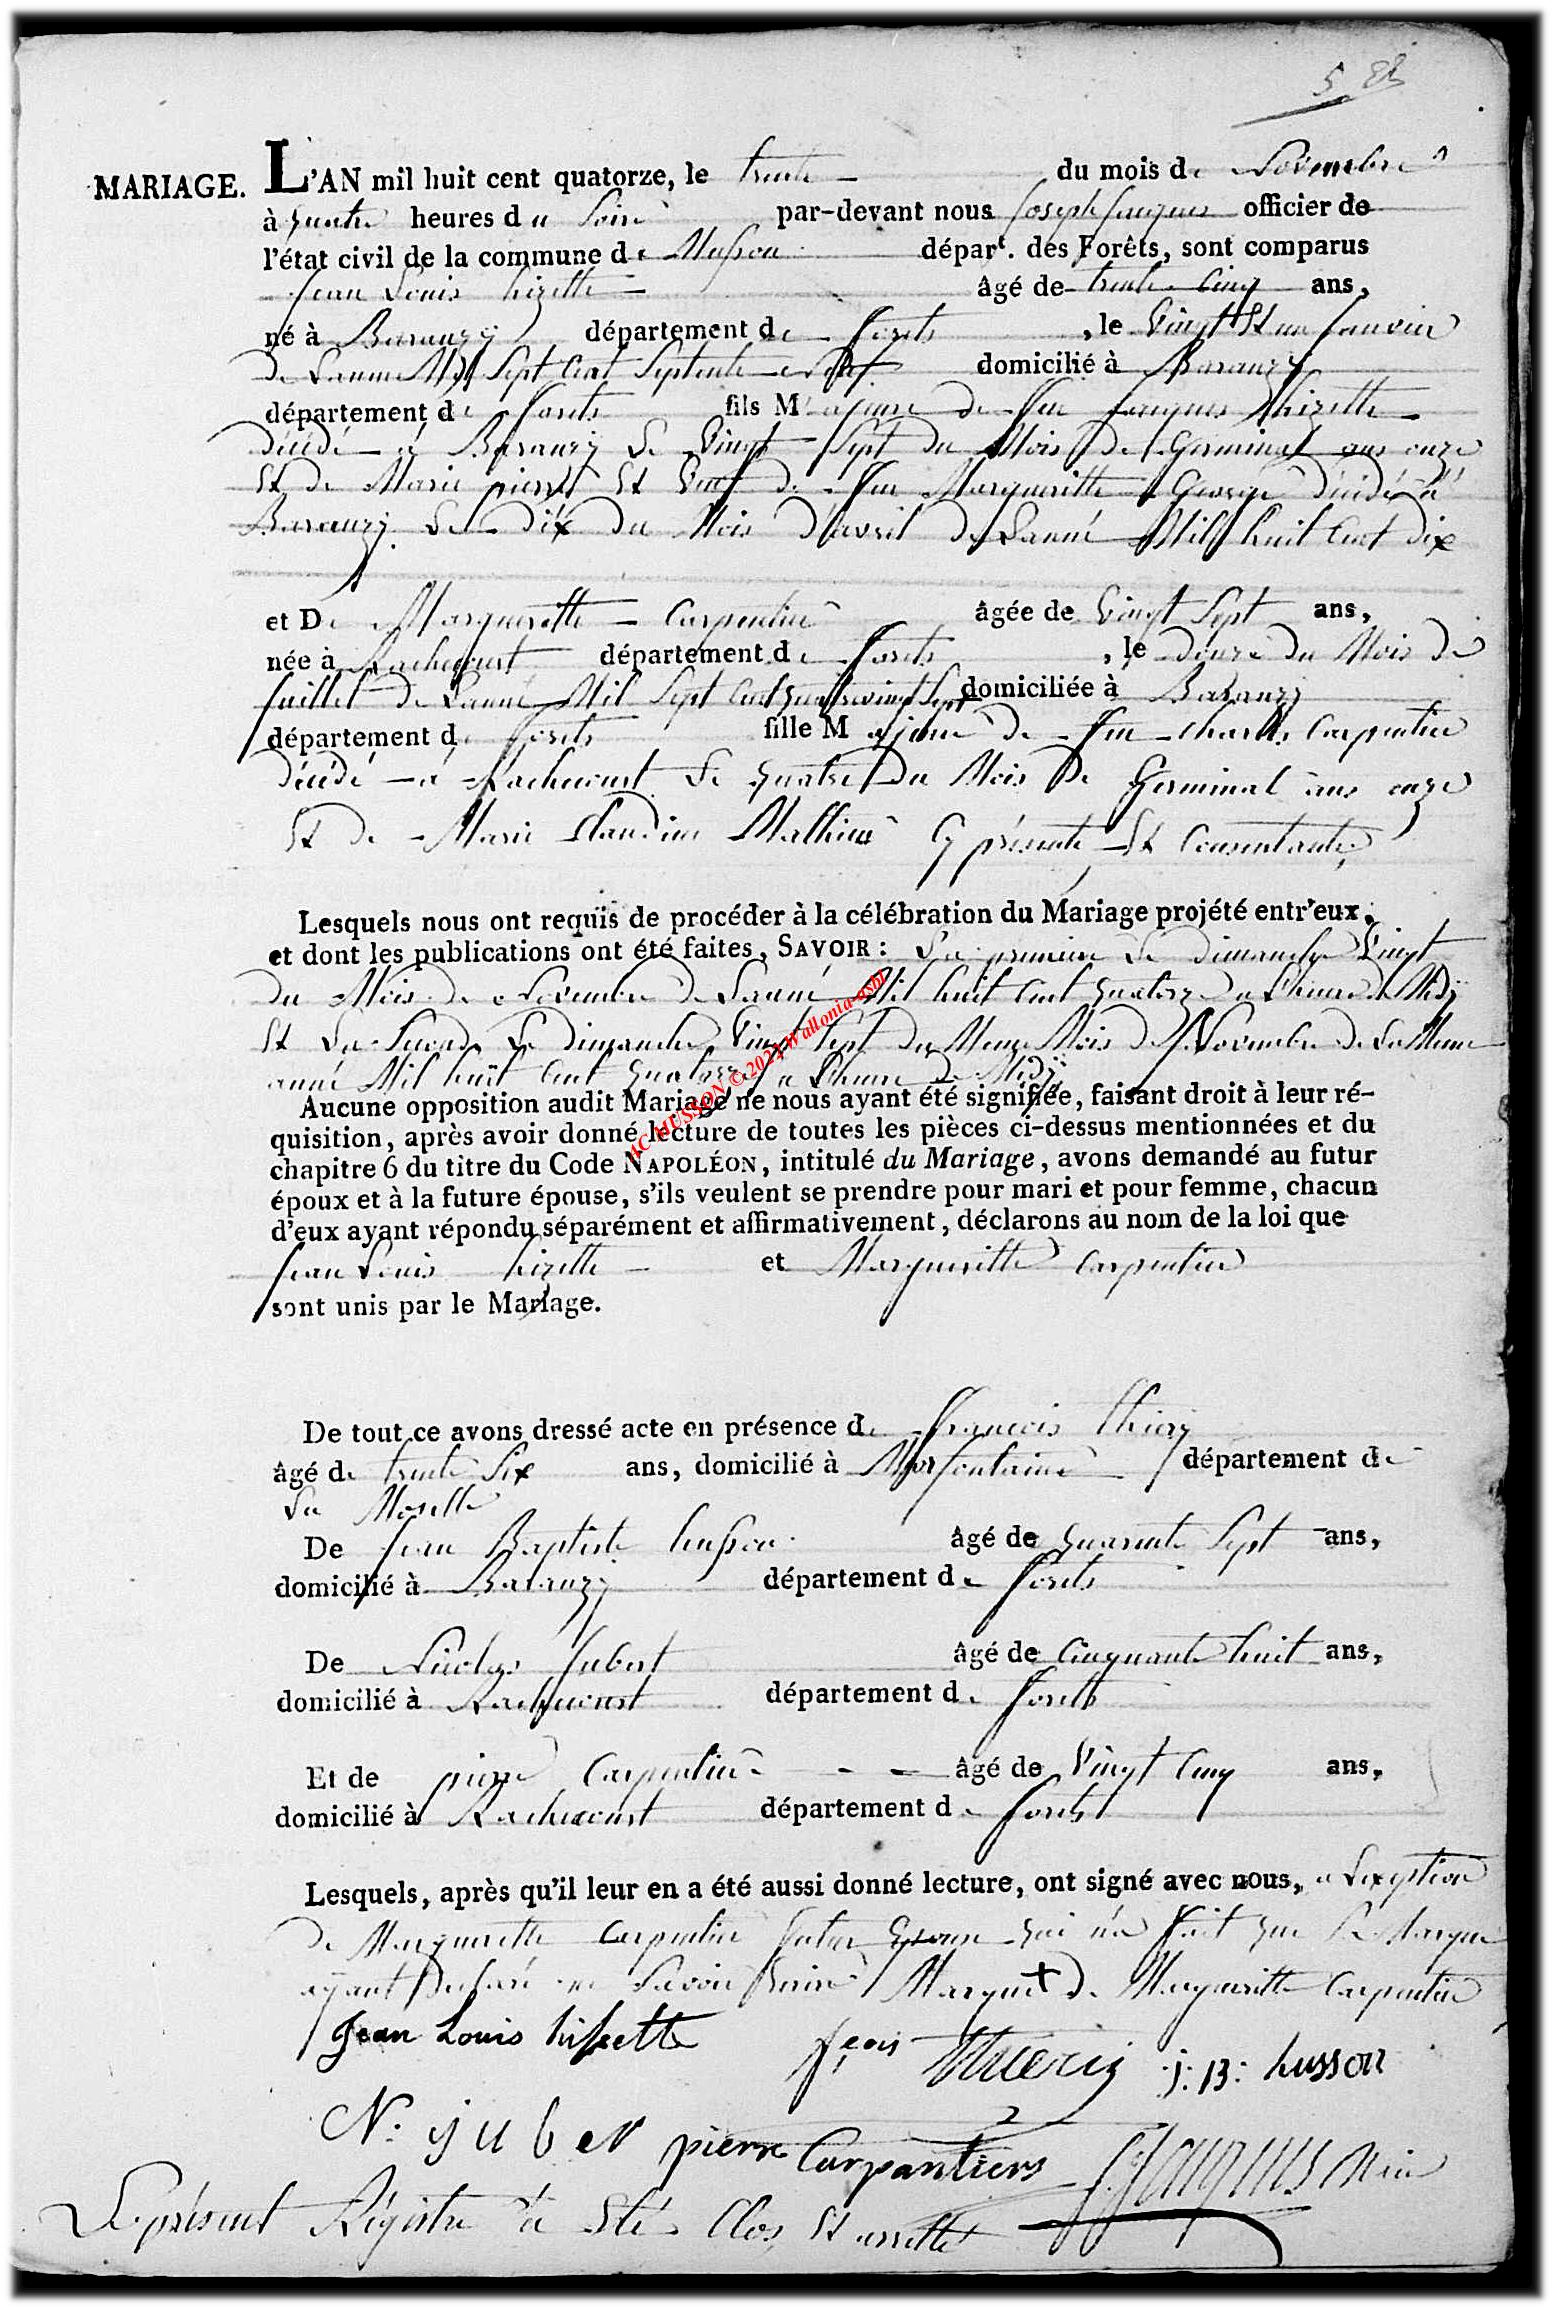 5
MARIAGE. L'AN mil huit cent quatorze, le trente du mois de Novembre
à quatre heures du Soire par-devant nous Joseph Jacques officier de
l'état civil de la commune de Musson départ. des Forêts, sont comparus
Jean Louis hizette âgé de trente Cinq ans,
né à Baranzy département de forets, le Vingt Et un Janvier
de Lanné Mil Sept Cent Septente neuf domicilié à Baranzy
département de forets fils Majeure de feu Jacques hizette
décédé à Baranzy Le Vingt Sept du Mois de Germinal ans onze
Et de Marie pierre Et Veuf de feu Margueritte George décédé à
Baranzy Le dix du Mois d'avril de Lanné Mil huit Cent dix
et De Margueritte Carpentier âgée de Vingt Sept ans,
née à Rachecourt département de forets, le douze du Mois de
Juillet de Lanné Mil Sept Cent quatrevingt Sept domiciliée à Baranzy
département de forets fille Majeure de feu Charles Carpentier
décédé à Rachecourt Le quatre du Mois de Germinal ans onze
Et de Marie Claudine Mathieu Cy présente Et Consentante,
Lesquels nous ont requis de procéder à la célébration du Mariage projété entr'eux,
et dont les publications ont été faites, SAVOIR : La premiere Le dimanche Vingt
du Mois de Novembre de Lanné Mil huit Cent quatorze a Lheure de Midÿ
Et La Seconde Le dimanche Vingt Sept du Meme Mois de Novembre de La Meme
anné Mil huit Cent quatorze a Lheure de Midÿ
Aucune opposition audit Mariage ne nous ayant été signifiée, faisant droit à leur ré-
quisition, après avoir donné lecture de toutes les pièces ci-dessus mentionnées et du
chapitre 6 du titre du Code NAPOLÉON, intitulé du Mariage, avons demandé au futur
époux et à la future épouse, s'ils veulent se prendre pour mari et pour femme, chacun
d'eux ayant répondu séparément et affirmativement, déclarons au nom de la loi que
Jean Louis hizette et Margueritte Carpentier
sont unis par le Mariage.
AC MUSSON © 2022 Wallonia-asbl
De tout ce avons dressé acte en présence de francois thiery
âgé de trente Six ans, domicilié à Morfontaine département de
La Moselle
De Jean Baptiste husson âgé de quarente Sept ans,
domicilié à Baranzy département de forets
De Nicolas Jubert âgé de Cinquante huit ans,
domicilié à Rachecourt département de forets
Et de pierre Carpentier âgé de Vingt Cinq ans,
domicilié à Rachecourt département de forets
Lesquels, après qu'il leur en a été aussi donné lecture, ont signé avec nous, a Lexeption
de Margueritte Carpentier futur Epouse qui n'a fait que Sa Marque
ayant Declaré ne Savoir Ecrire Marque + de Margueritte Carpentier
Jean Louis hissette fçois thierij j: B: husson
N: juber pierre Carpantiers J. Jacques Mair
Le présent Régistre a Eté Clos Et arretté